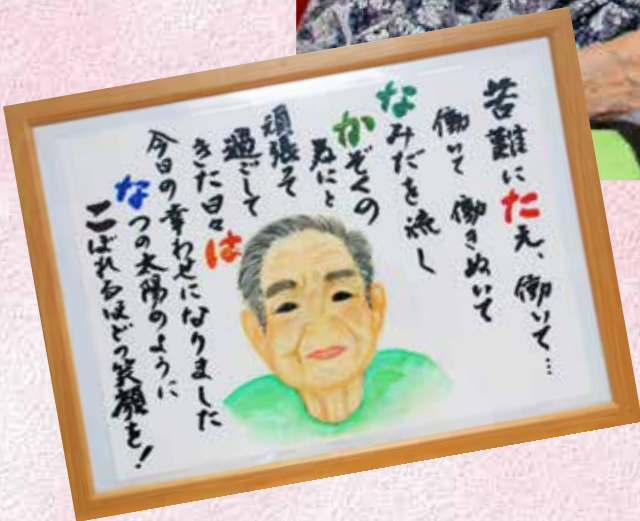 苦難にたえ、働いて…
働いて 働きぬいて
なみだを流し
かぞくの
為にと
頑張って
過ごして
きた日々は
今日の幸わせになりました
なつの太陽のように
こぼれるほどの笑顔を!